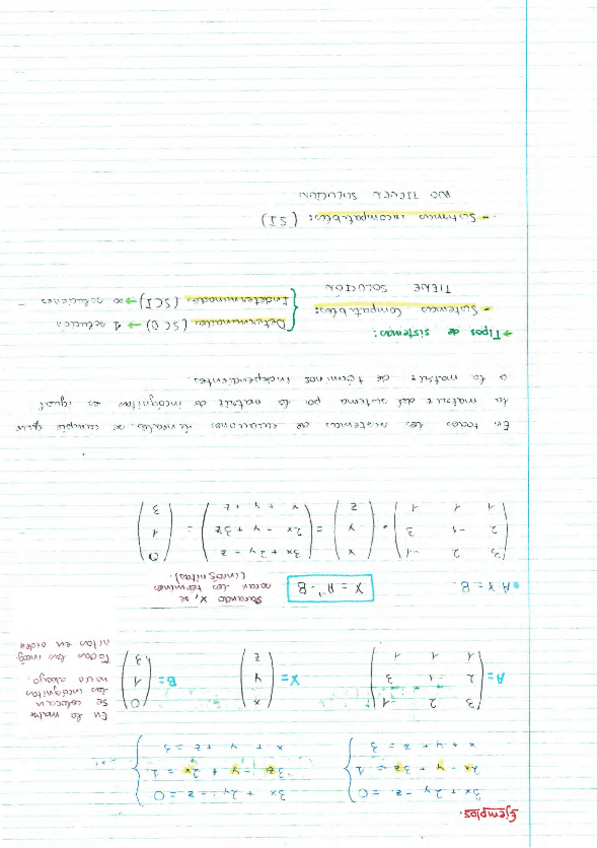 Ejemplos.
3x + 2y - z = 0
2x - y + 3z = 1
x + y + z = 3
3x + 2y - z = 0
3z - y + 2x = 1
x + y + z = 3
A = (3 2 -1
2 -1 3
1 1 1)
X = (x
y
z)
B = (0
1
3)
En la matriz
se colocan
las incógnitas
hacia abajo.
Todas las incóg-
nitas en orden
A·X = B.
X = A⁻¹·B
Sacando X, se
sacan los términos
(incógnitas).
(3 2 -1
2 -1 3
1 1 1) · (x
y
z) = (3x + 2y - z
2x - y + 3z
x + y + z) = (0
1
3)
En todos los sistemas de ecuaciones lineales se cumple que
la matriz del sistema por la matriz de incógnitas es igual
a la matriz de términos independientes.
→ Tipos de sistemas:
- Sistemas compatibles:
TIENE SOLUCIÓN
Determinados (SCD) → 1 solución
Indeterminados (SCI) → ∞ soluciones
- Sistemas incompatibles: (SI)
NO TIENEN SOLUCIÓN